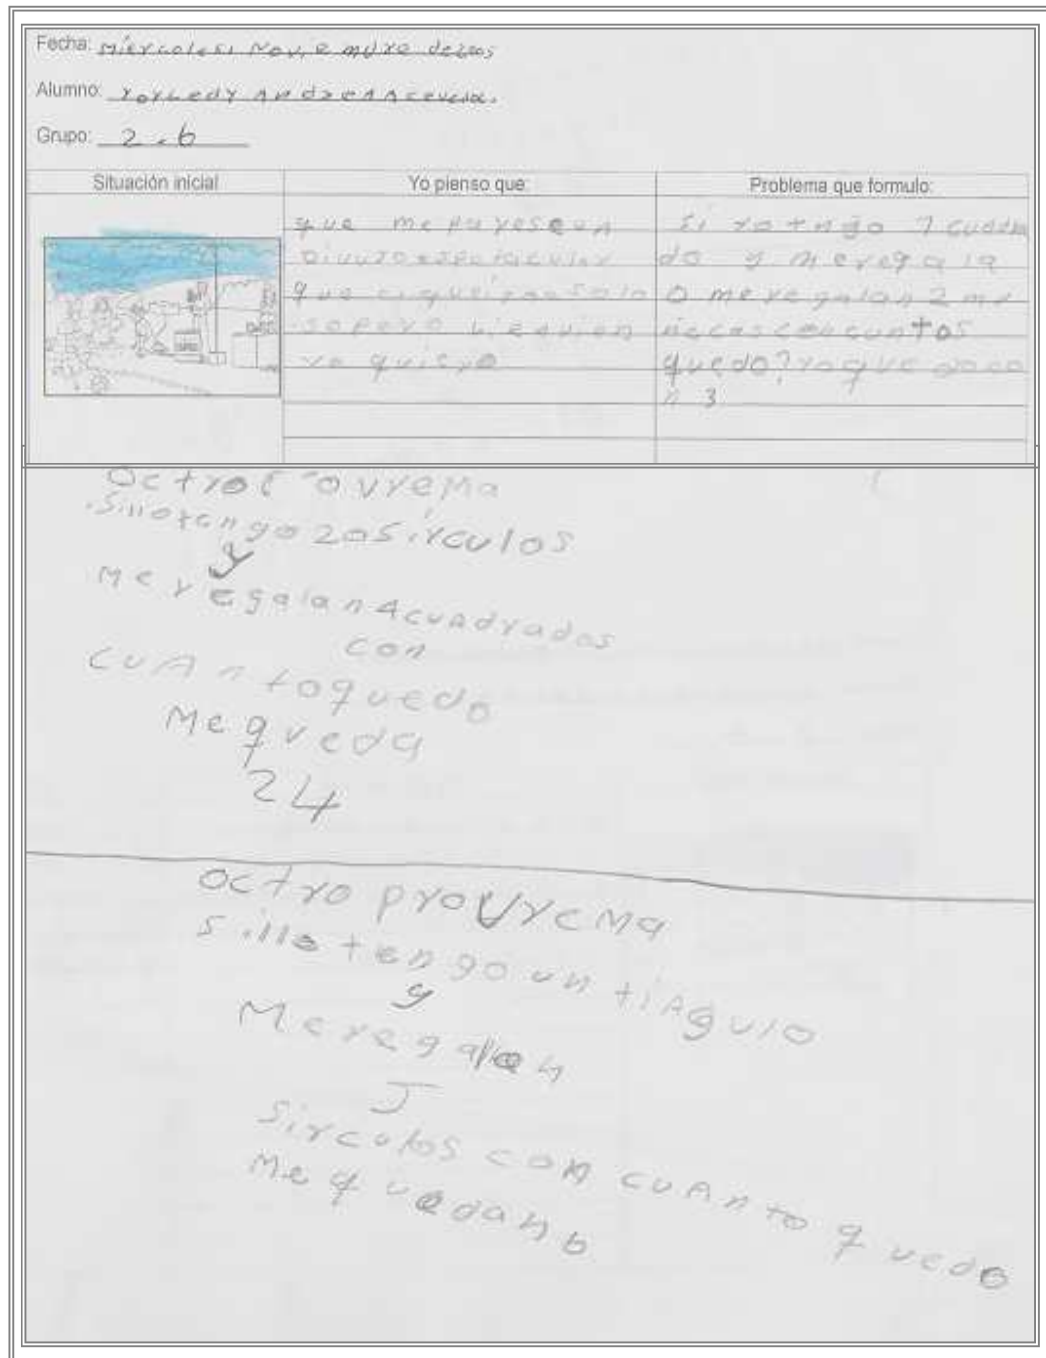 Fecha: miercoles, Noviemdre de2005
Alumno: Yorledy Andrea Aceveda.
Grupo: 2.6
Situación inicial
Yo pienso que:
Problema que formulo:
que me pareseun
Divuzo espetacular
que
sopero
yo quiero
Si yo tngo 1 cuadra
do y meregala
o me regalan 2 mu
ñecas con cuntos
quedo? yo que doco
n 3
octro Provrema
.Sillotengo 20Sirculos
y
Me regalan 4cuadrados
con
CUAntoquedo
Me queda
24
octro proVreMa
Sillo tengo un tiAgulo
y
Me regalan
5
Sirculos con cuAnto quedo
Me quedan 6